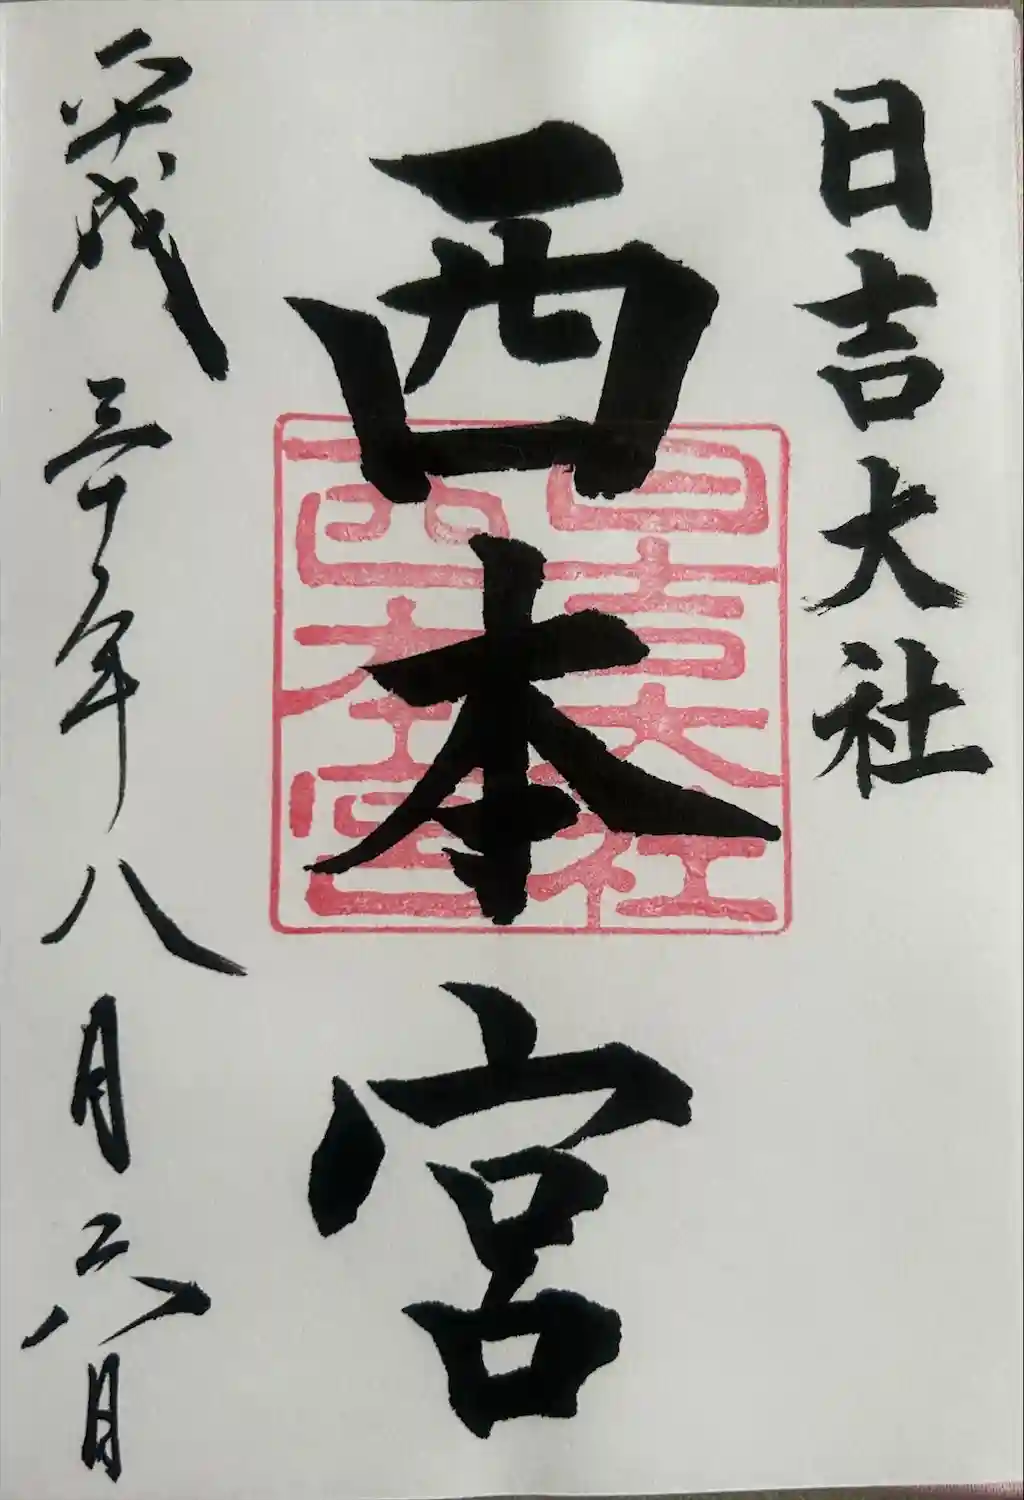 日吉大社
西本宮
日吉大社
西本宮
平成三十年八月六日